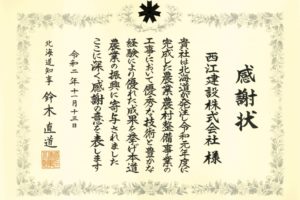 感謝状
西江建設株式会社 様
貴社は北海道が発注し令和元年度に
完成した農業農村整備事業の
工事において優秀な技術と豊かな
経験により優れた成果を挙げ本道
農業の振興に寄与されました
ここに深く感謝の意を表します
令和二年十一月十三日
北海道知事 鈴木直道